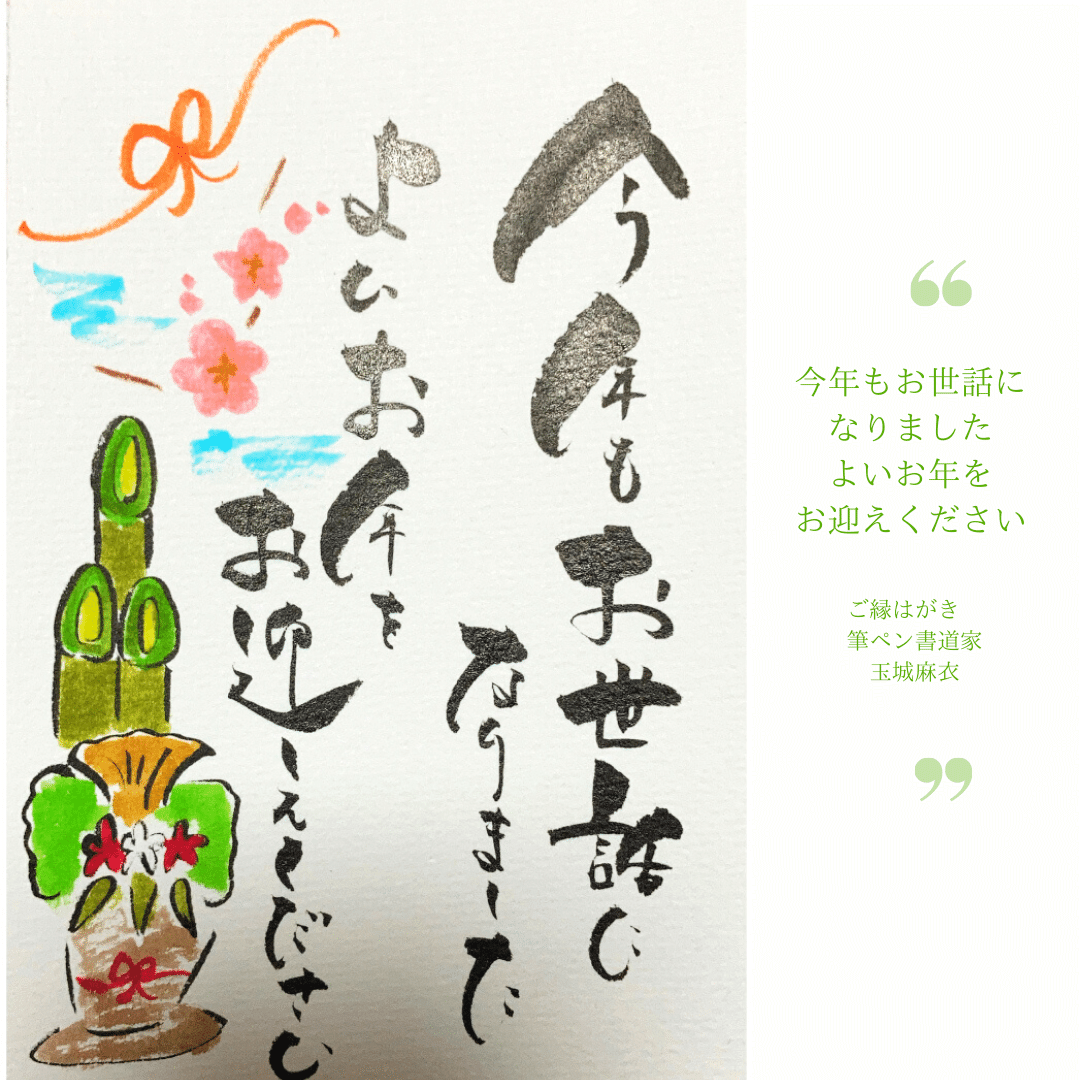 今年もお世話に
なりました
よいお年を
お迎えください
今年もお世話に
なりました
よいお年を
お迎えください
ご縁はがき
筆ペン書道家
玉城麻衣